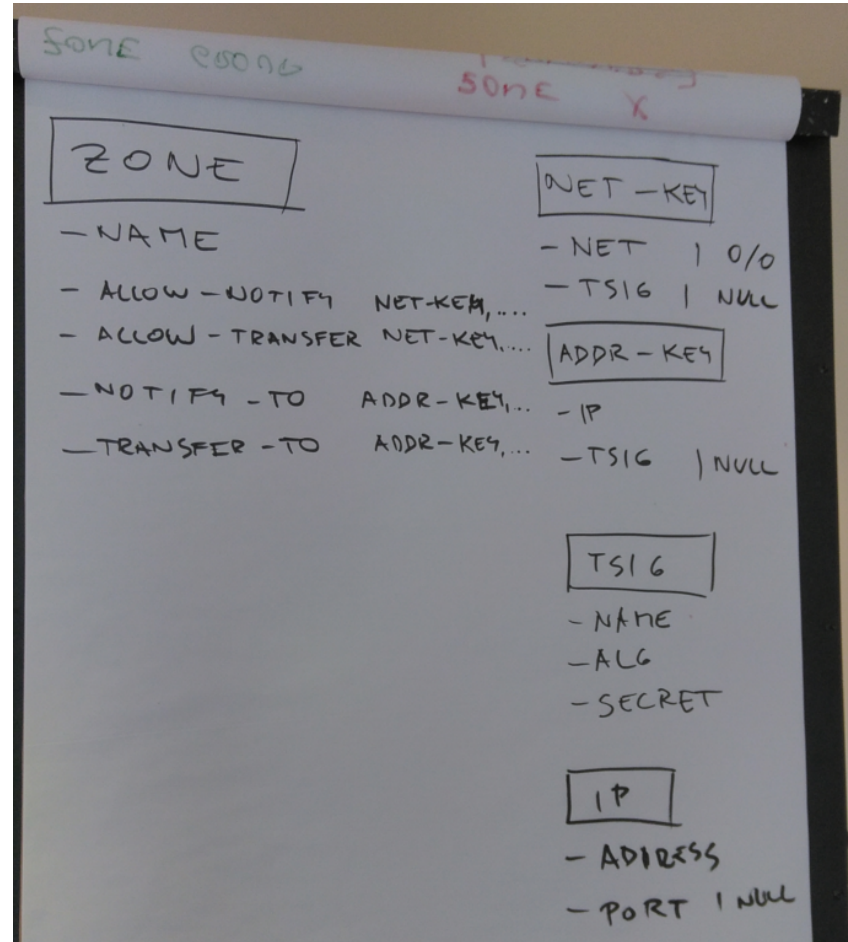 SOME
SOME X
ZONE
- NAME
- ALLOW - NOTIFY NET-KEY, ....
- ALLOW - TRANSFER NET-KEY, ....
- NOTIFY - TO ADDR-KEY, ...
- TRANSFER - TO ADDR-KEY, ...
NET - KEY
- NET | 0/0
- TSIG | NULL
ADDR - KEY
- IP
- TSIG | NULL
TSIG
- NAME
- ALG
- SECRET
IP
- ADDRESS
- PORT | NULL